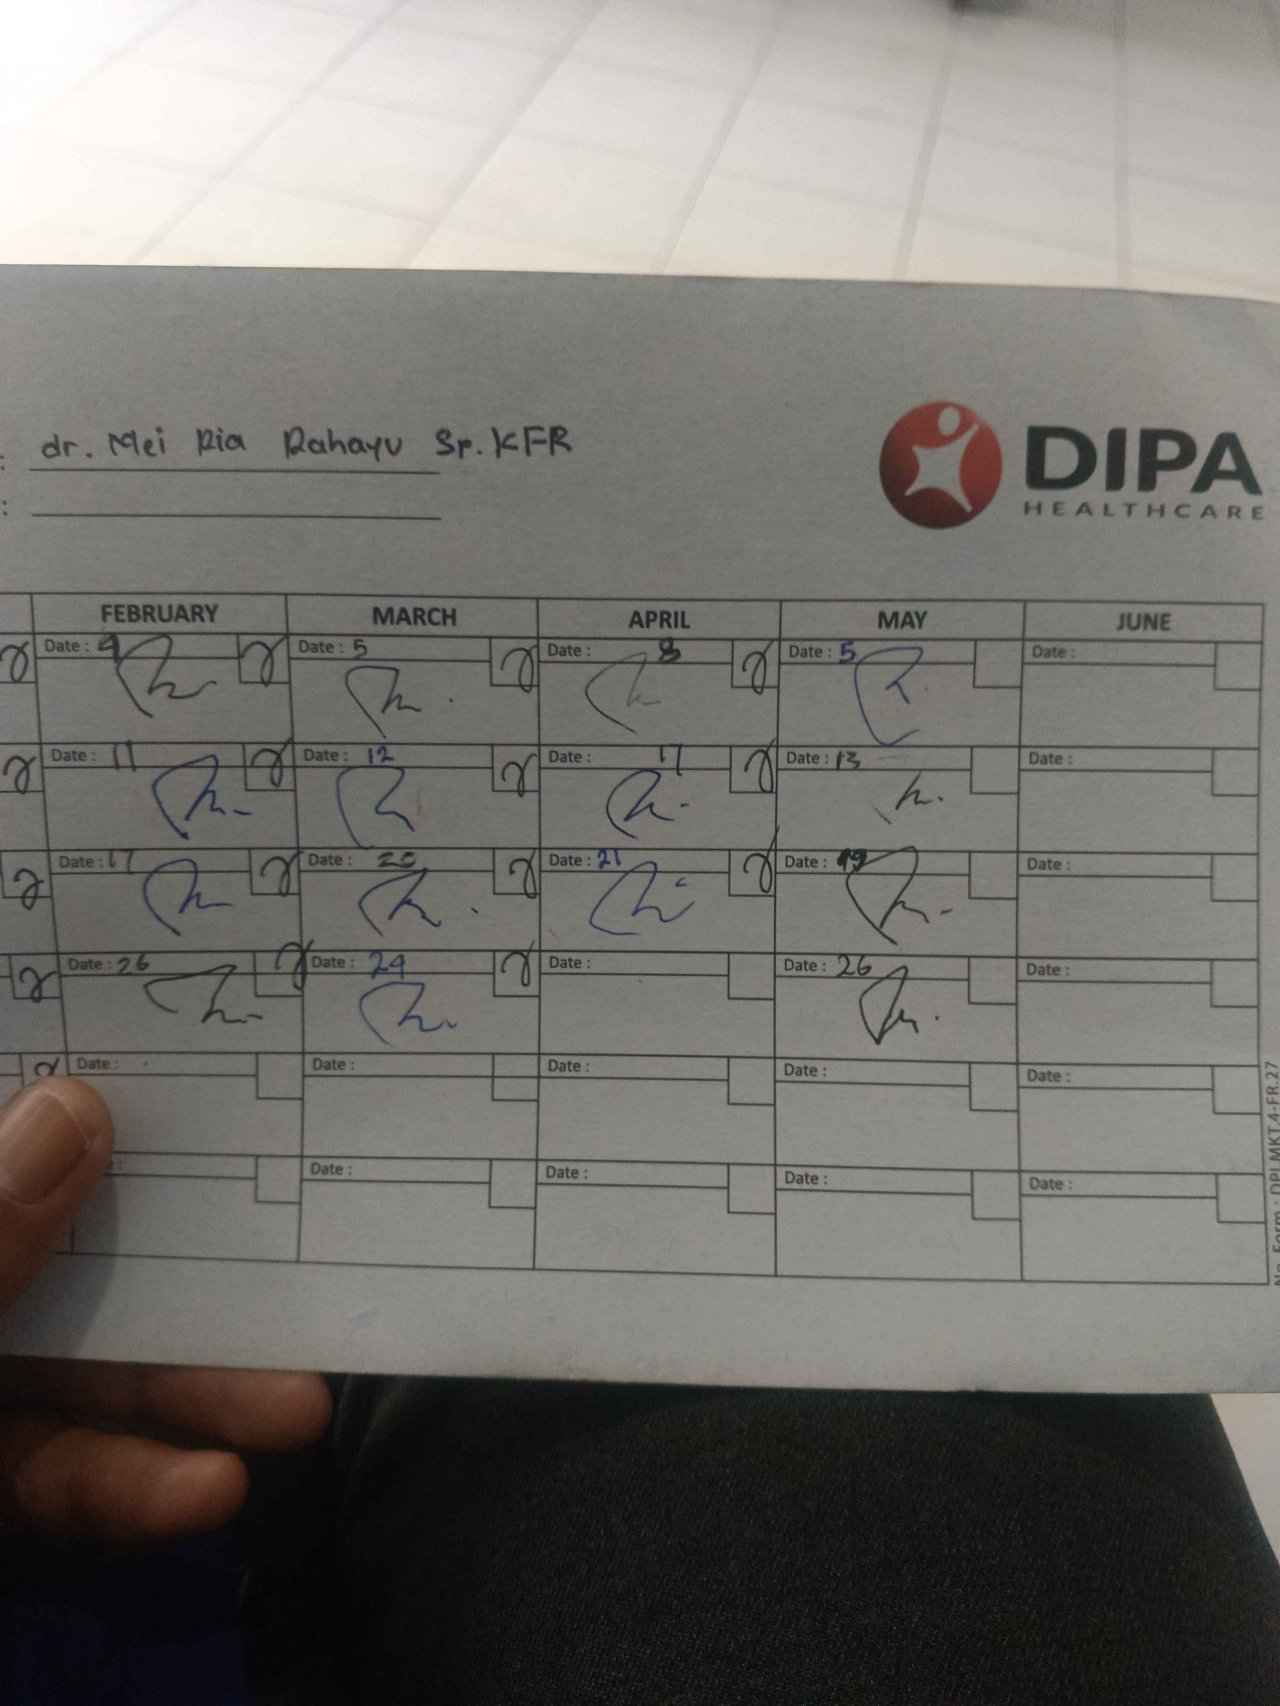 : dr. Mei Ria Rahayu Sp.KFR
:
DIPA
HEALTHCARE
FEBRUARY MARCH APRIL MAY JUNE
Date : 4 Date : 5 Date : 8 Date : 5 Date :
Date : 11 Date : 12 Date : 17 Date : 13 Date :
Date : 17 Date : 20 Date : 21 Date : 19 Date :
Date : 26 Date : 24 Date : Date : 26 Date :
Date : Date : Date : Date : Date :
Date : Date : Date : Date :
No. Form : DPI.MKT.4-FR.27